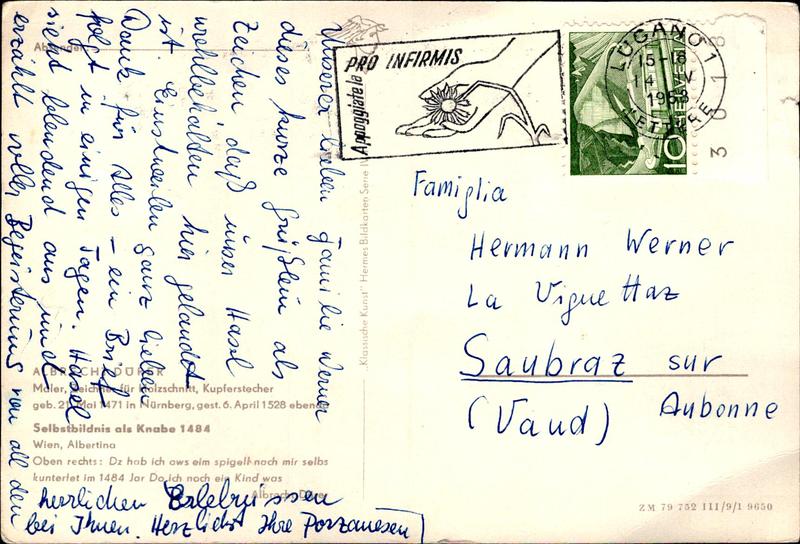 Absender
Unserer lieben Familie Werner
dieses kurze Grüßlein als
Zeichen daß unser Hasel
wohlbehalten hier gelandet
ist. Einstweilen ganz lieben
Dank für Alles – ein Brief
folgt in einigen Tagen. Hasel
sieht blendend aus und
erzählt voller Begeisterung von all den
herrlichen Erlebnissen
bei Ihnen. Herzlichst Ihre
ALBRECHT DÜRER
Maler, Zeichner für Holzschnitt, Kupferstecher
geb. 21. Mai 1471 in Nürnberg, gest. 6. April 1528 ebenda
Selbstbildnis als Knabe 1484
Wien, Albertina
Oben rechts: Dz hab ich aws eim spigell nach mir selbs
kunterfet im 1484 Jar Do ich noch ein Kind was
Albrecht Dürer
„Klassische Kunst" Hermes Bildkarten Serie
PRO INFIRMIS
LUGANO 1
15-18
LETTERE
HELVETIA
10
3 0 1 8
Famiglia
Hermann Werner
La Vigne Haz
Saubraz sur
Aubonne
(Vaud)
ZM 79 752 III/9/1 9650